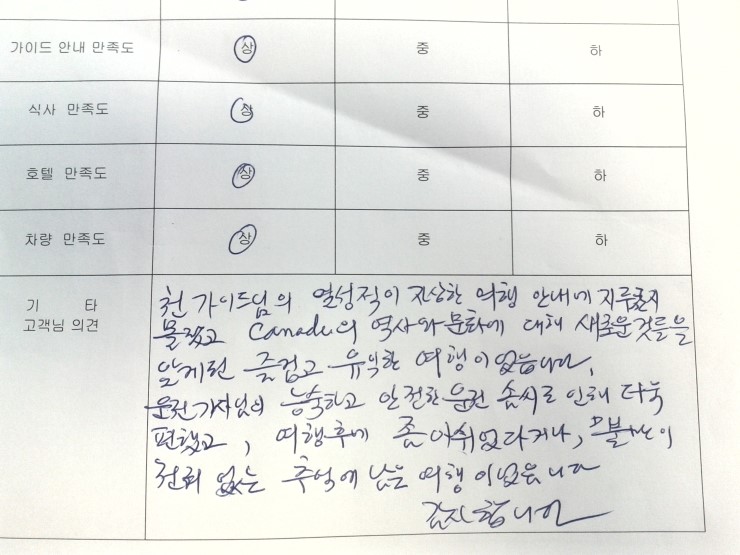 가이드 안내 만족도 상 중 하
식사 만족도 상 중 하
호텔 만족도 상 중 하
차량 만족도 상 중 하
기 타
고객님 의견
천 가이드님의 열성적이 자상한 여행 안내에 지루한지
몰랐고 Canada의 역사와 문화에 대해 새로운것들을
알게된 즐겁고 유익한 여행이었습니다.
운전기사님의 능숙하고 안전한 운전 솜씨로 인해 더욱
편했고, 여행후에 좀 아쉬웠다거나, 불만이
전혀 없는 추억에 남은 여행이었읍니다
감사합니다